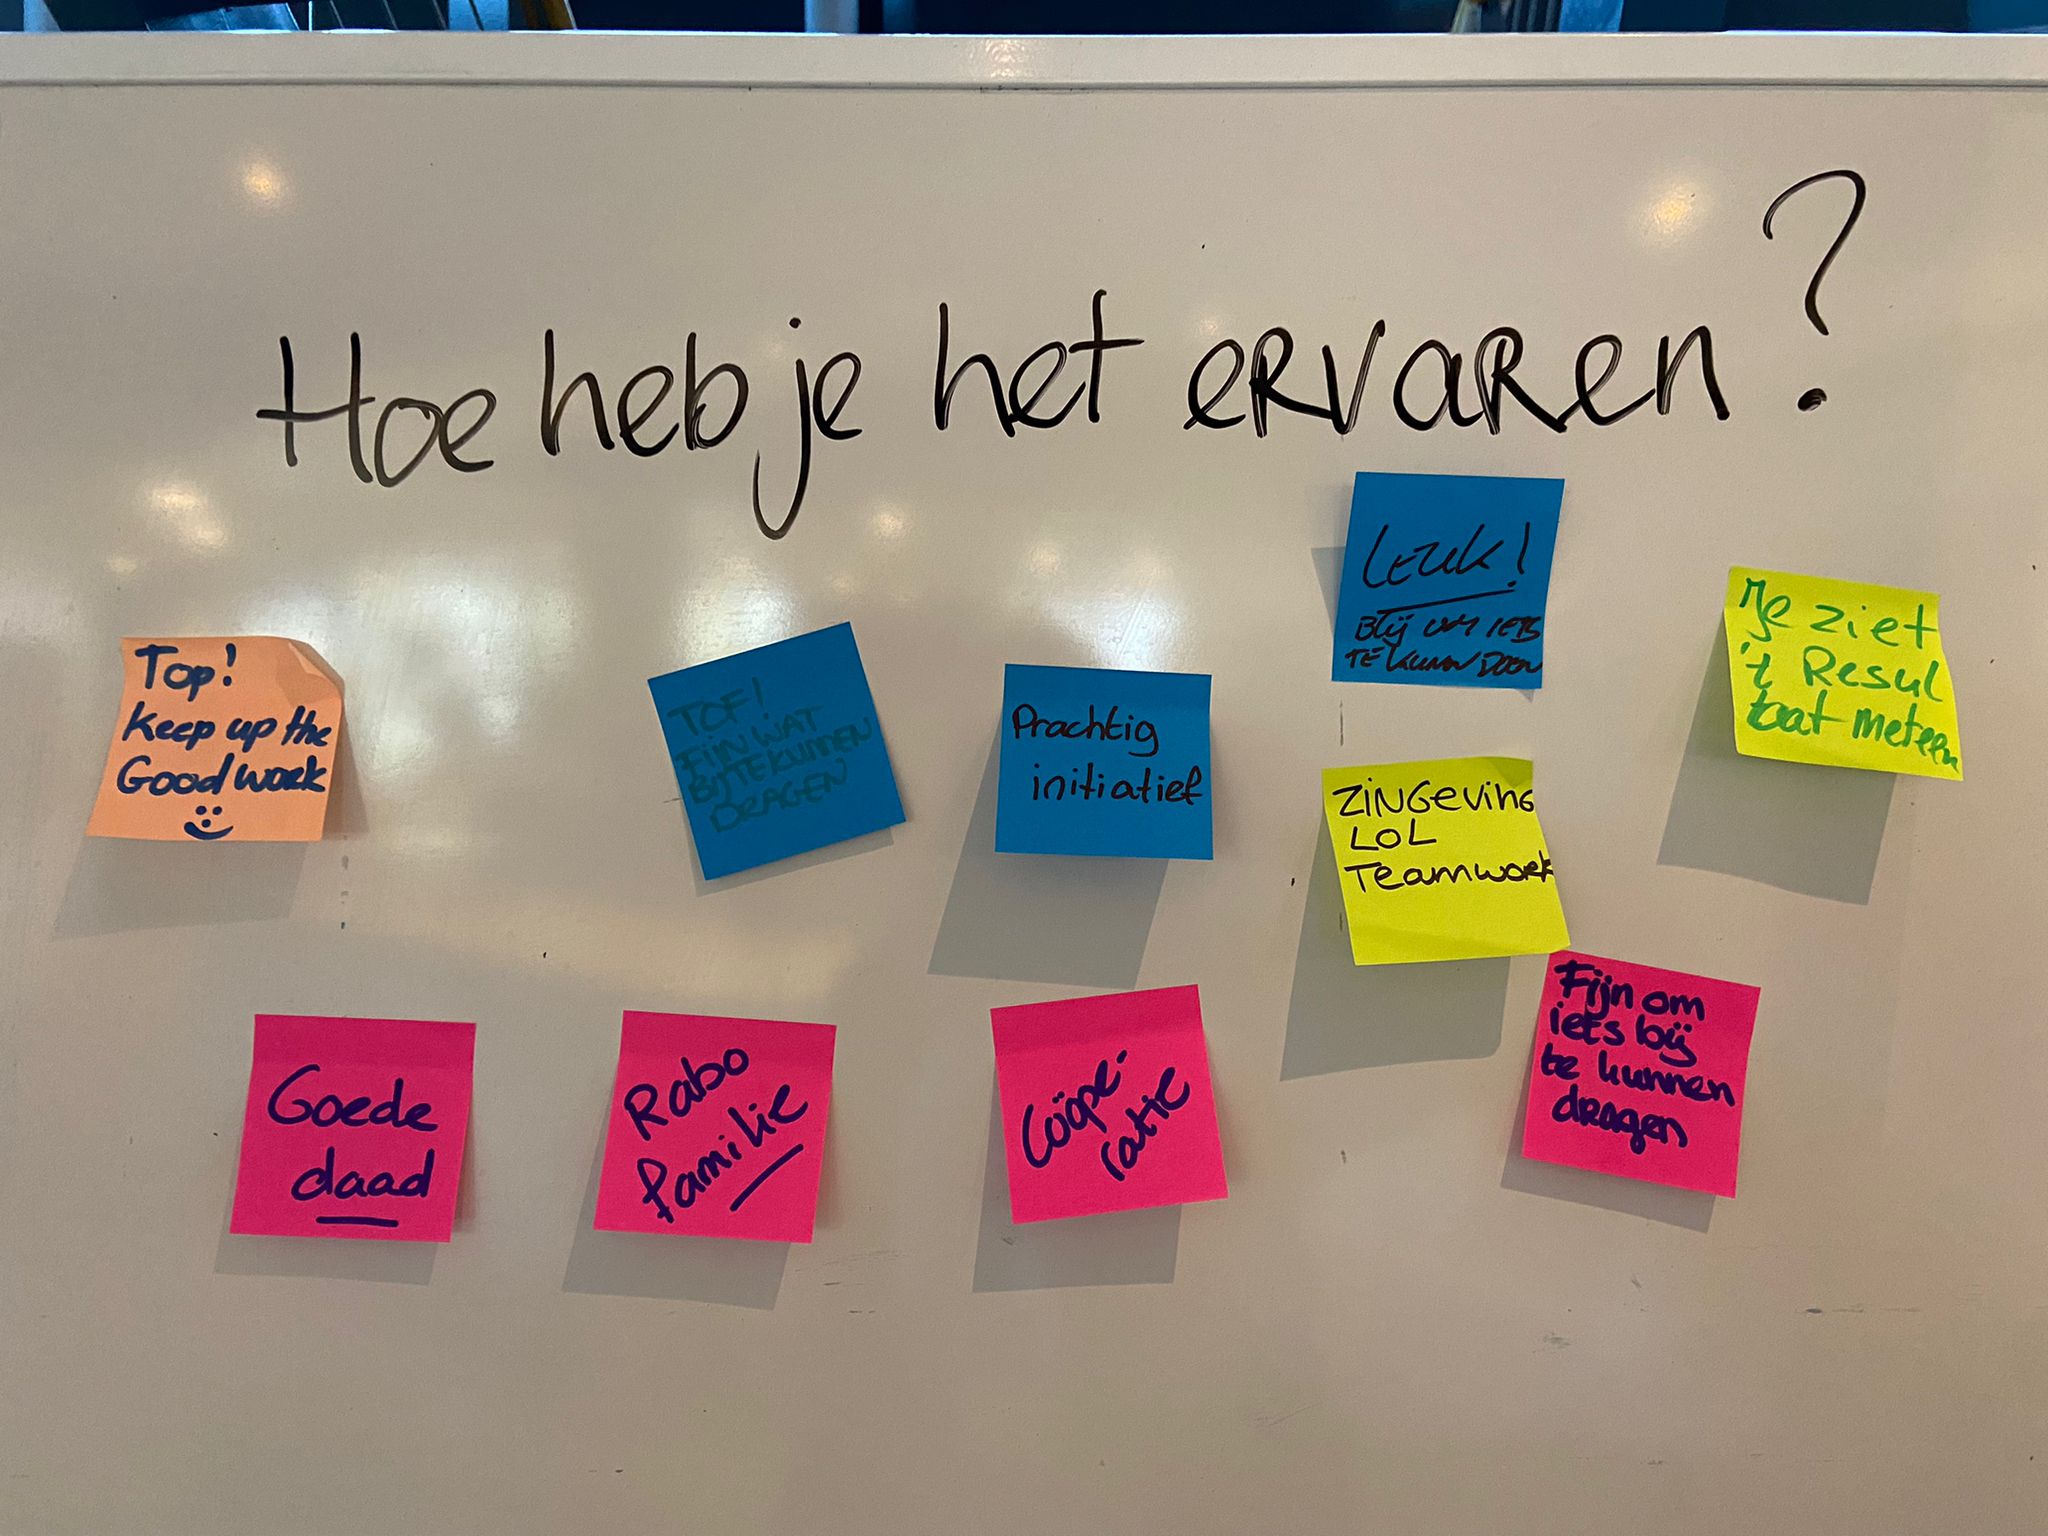 Hoe heb je het ervaren?
Leuk!
Blij om iets
te kunn doen
Je ziet
't Resul
taat meteen
Top!
keep up the
Good work
TOF!
FIJN WAT
BIJ TE KUNNEN
DRAGEN
Prachtig
initiatief
ZINGeving
LOL
Teamwork
Goede
daad
Rabo
familie
Coöpe-
ratie
Fijn om
iets bij
te kunnen
dragen